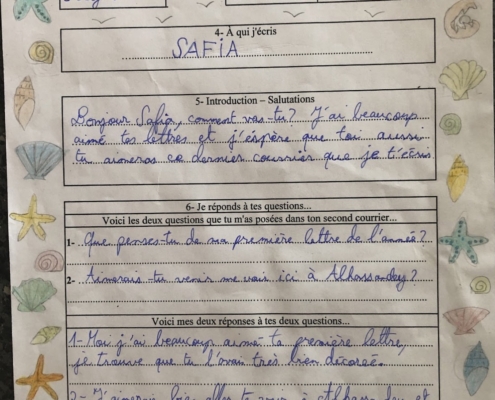 4- À qui j'écris
SAFIA
5- Introduction – Salutations
Bonjour Safia, comment vas-tu? J'ai beaucoup
aimé tes lettres et j'éspère que toi aussi
tu aimeras ce dernier courrier que je t'écris
6- Je réponds à tes questions...
Voici les deux questions que tu m'as posées dans ton second courrier...
1- Que penses-tu de ma première lettre de l'année?
2- Aimerais-tu venir me voir ici à
Voici mes deux réponses à tes deux questions...
1- Moi j'ai beaucoup aimé ta première lettre,
je trouve que tu l'avais très bien décorée.
2- J'aimerais bien aller te voir à